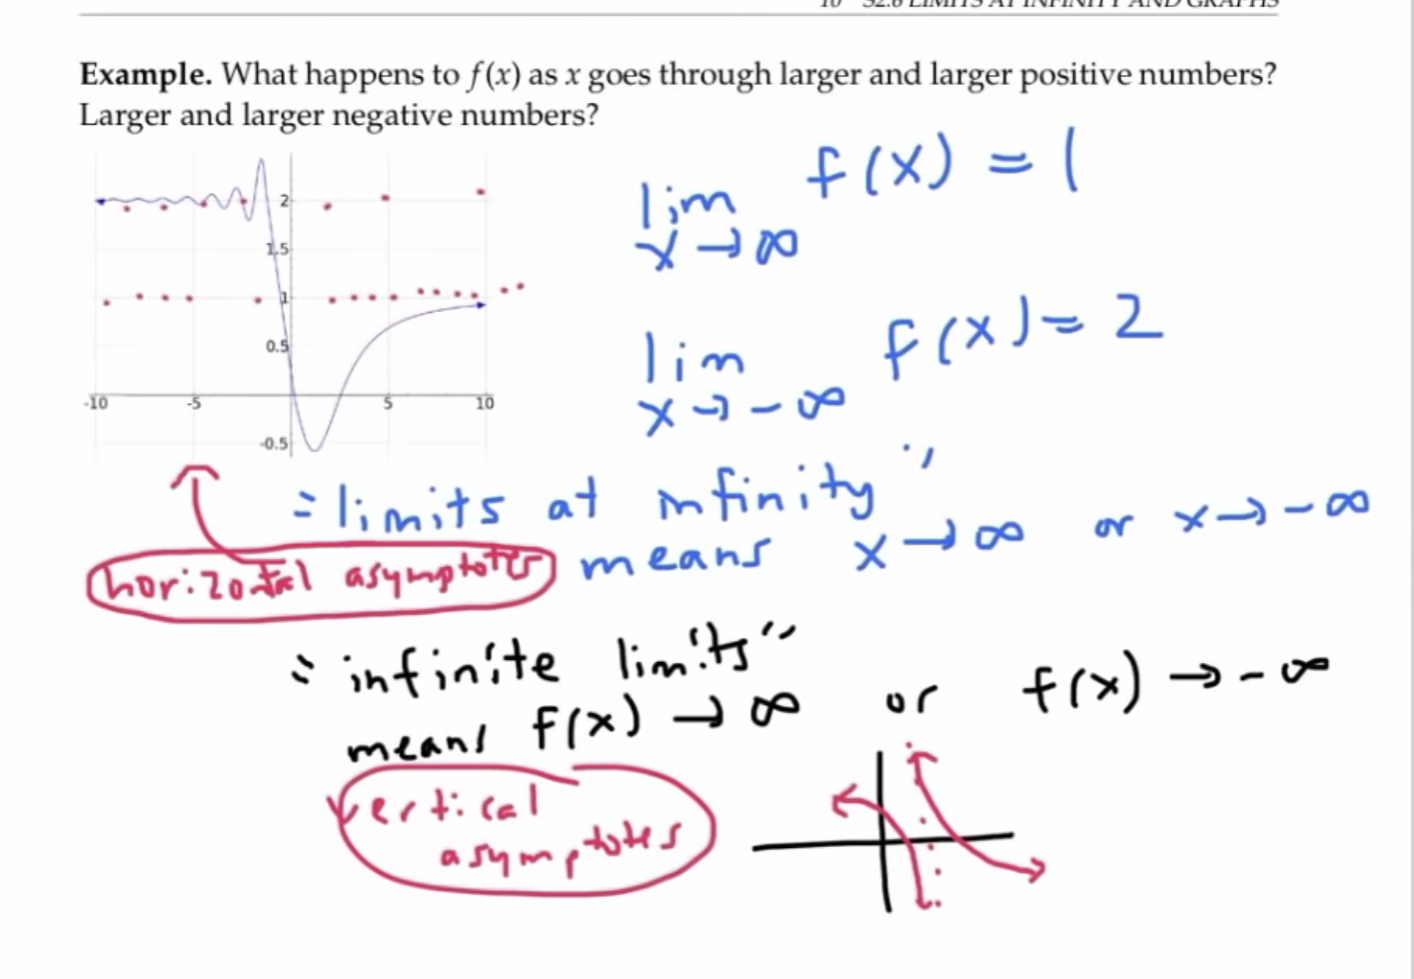 10 §2.6 LIMITS AT INFINITY AND GRAPHS
Example. What happens to f(x) as x goes through larger and larger positive numbers?
Larger and larger negative numbers?
lim f(x) = 1
x → ∞
lim f(x) = 2
x → -∞
2
1.5
1
0.5
-10 -5 5 10
-0.5
"limits at infinity"
means x → ∞ or x → -∞
horizontal asymptotes
"infinite limits"
means f(x) → ∞ or f(x) → -∞
vertical
asymptotes